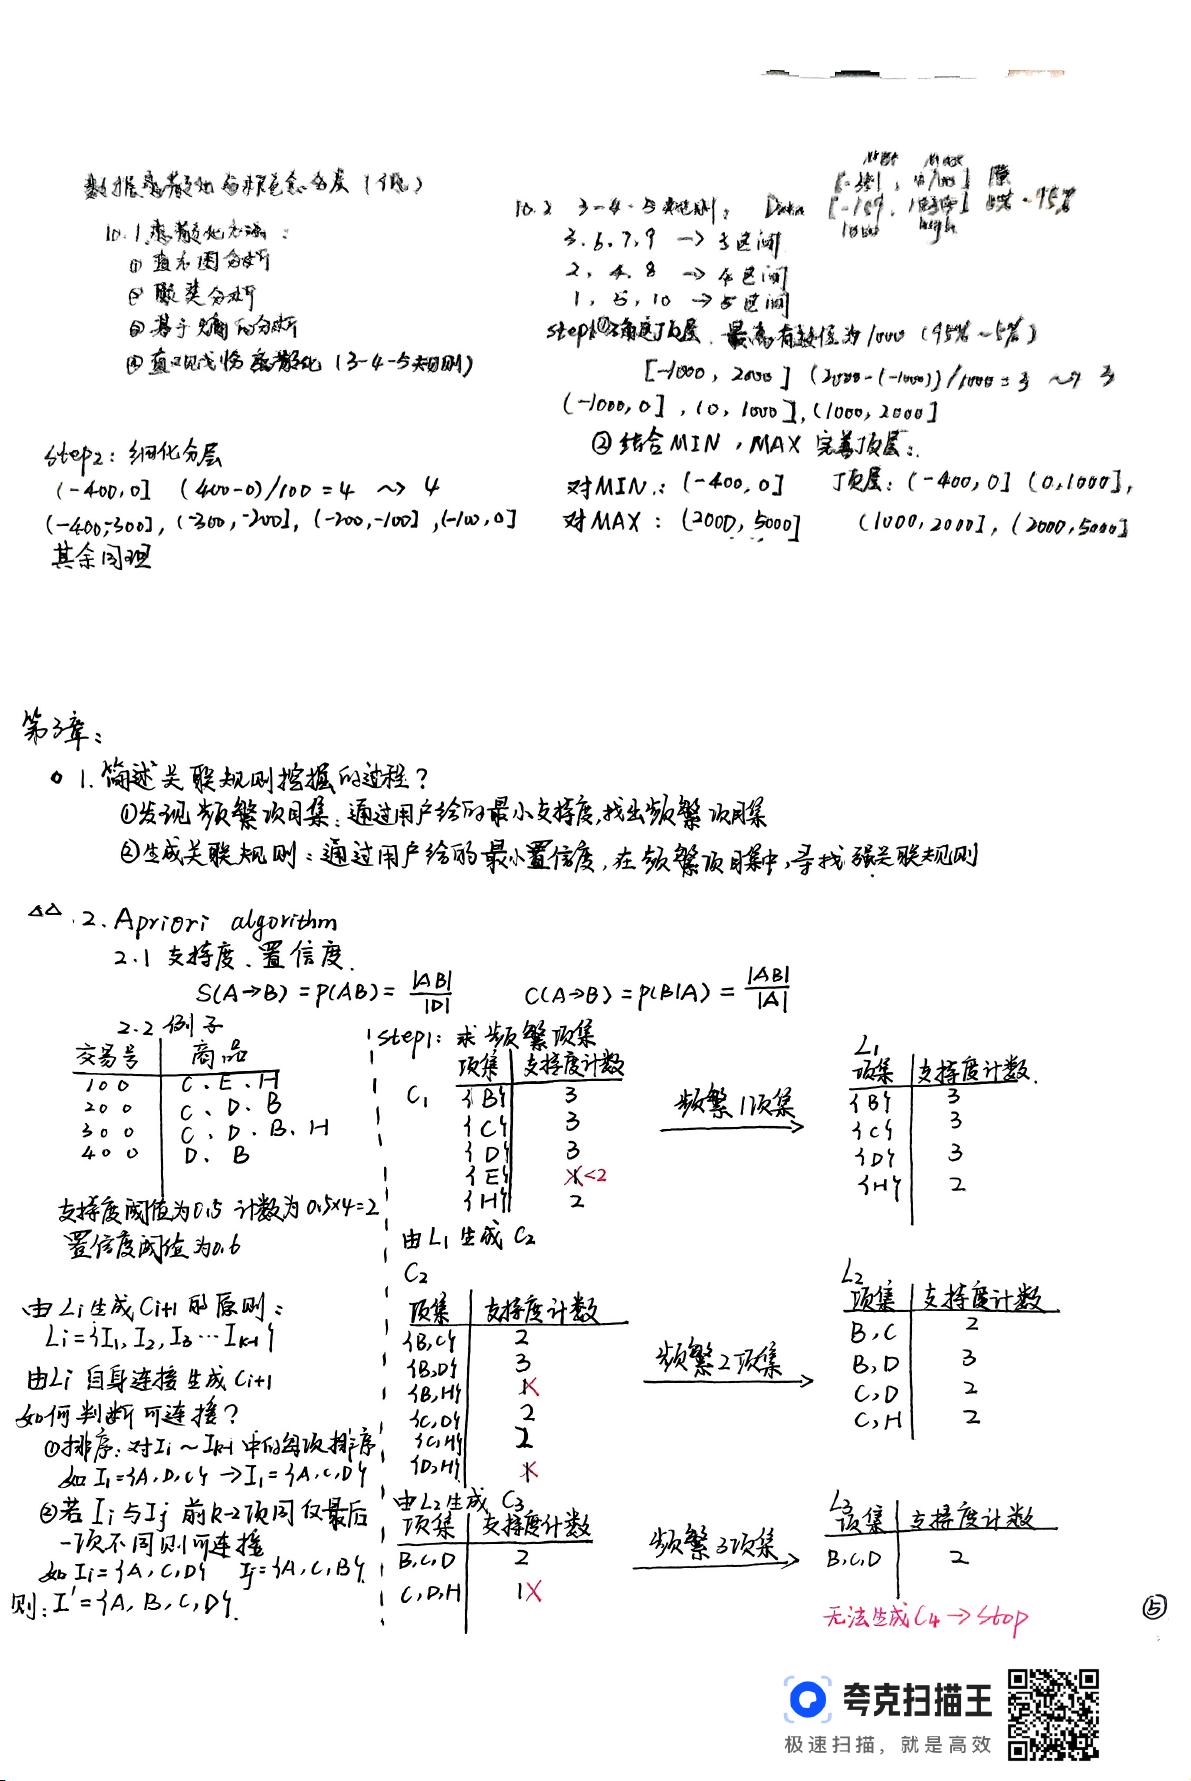 数据离散化与概念分层
10.1 离散化方法:
① 直方图分析
② 聚类分析
③ 基于熵的分析
④ 直观划分离散化 (3-4-5规则)
10.2 3-4-5规则: Data
3.6.7.9 → 3区间
2, 4, 8 → 4区间
1, 5, 10 → 5区间
step1: ①确定顶层. 最高有效位为1000 (95%~5%)
[-1000, 2000] (2000-(-1000))/1000=3 ~> 3
(-1000,0], (0, 1000], (1000, 2000]
② 结合MIN, MAX 完善顶层:
对MIN: (-400, 0] 顶层: (-400, 0] (0,1000],
对MAX: (2000, 5000] (1000, 2000], (2000, 5000]
step2: 细化分层
(-400,0] (400-0)/100=4 ~> 4
(-400,-300], (-300,-200], (-200,-100], (-100,0]
其余同理
第3章:
1. 简述关联规则挖掘的过程?
①发现频繁项目集: 通过用户给的最小支持度, 找出频繁项目集
②生成关联规则: 通过用户给的最小置信度, 在频繁项目集中, 寻找强关联规则
△△.2. Apriori algorithm
2.1 支持度、置信度.
S(A→B) = P(AB) = |AB| / |D|
C(A→B) = P(B|A) = |AB| / |A|
2.2 例子
交易号 商品
100 C、E、H
200 C、D、B
300 C、D、B、H
400 D、B
支持度阈值为0.5 计数为0.5×4=2
置信度阈值为0.6
由Li生成Ci+1的原则:
Li={I1, I2, I3…Ik-1}
由Li自身连接生成Ci+1
如何判断可连接?
①排序: 对Ii~Ik-1中的每项排序
如 I1={A,D,C} → I1={A,C,D}
②若Ii与Ij前k-2项同仅最后
一项不同则可连接
如 Ii={A,C,D} Ij={A,C,B}
则: I'={A,B,C,D}.
step1: 求频繁项集
C1
项集 支持度计数
{B} 3
{C} 3
{D} 3
{E} 1 <2
{H} 2
频繁1项集
L1
项集 支持度计数
{B} 3
{C} 3
{D} 3
{H} 2
由L1生成C2
C2
项集 支持度计数
{B,C} 2
{B,D} 3
{B,H} 1×
{C,D} 2
{C,H} 2
{D,H} 1×
频繁2项集
L2
项集 支持度计数
B,C 2
B,D 3
C,D 2
C,H 2
由L2生成C3
项集 支持度计数
B,C,D 2
C,D,H 1×
频繁3项集
L3
项集 支持度计数
B,C,D 2
无法生成C4→stop
⑤
夸克扫描王
极速扫描，就是高效